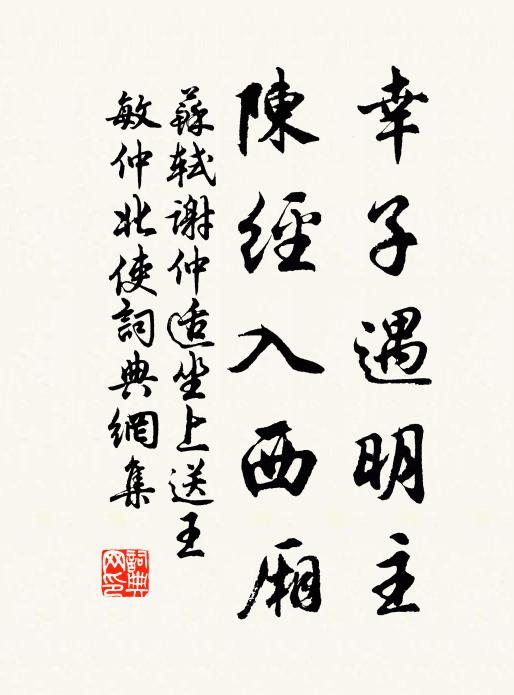 幸子遇明主
陳經入西廂
蘇軾謝仲适坐上送王
敏仲北使詞典網集
詞典網印